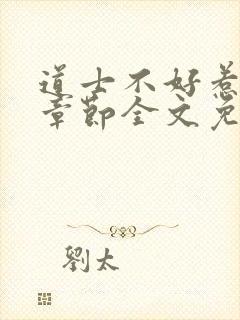 道士不好惹
章節全文免
劉太